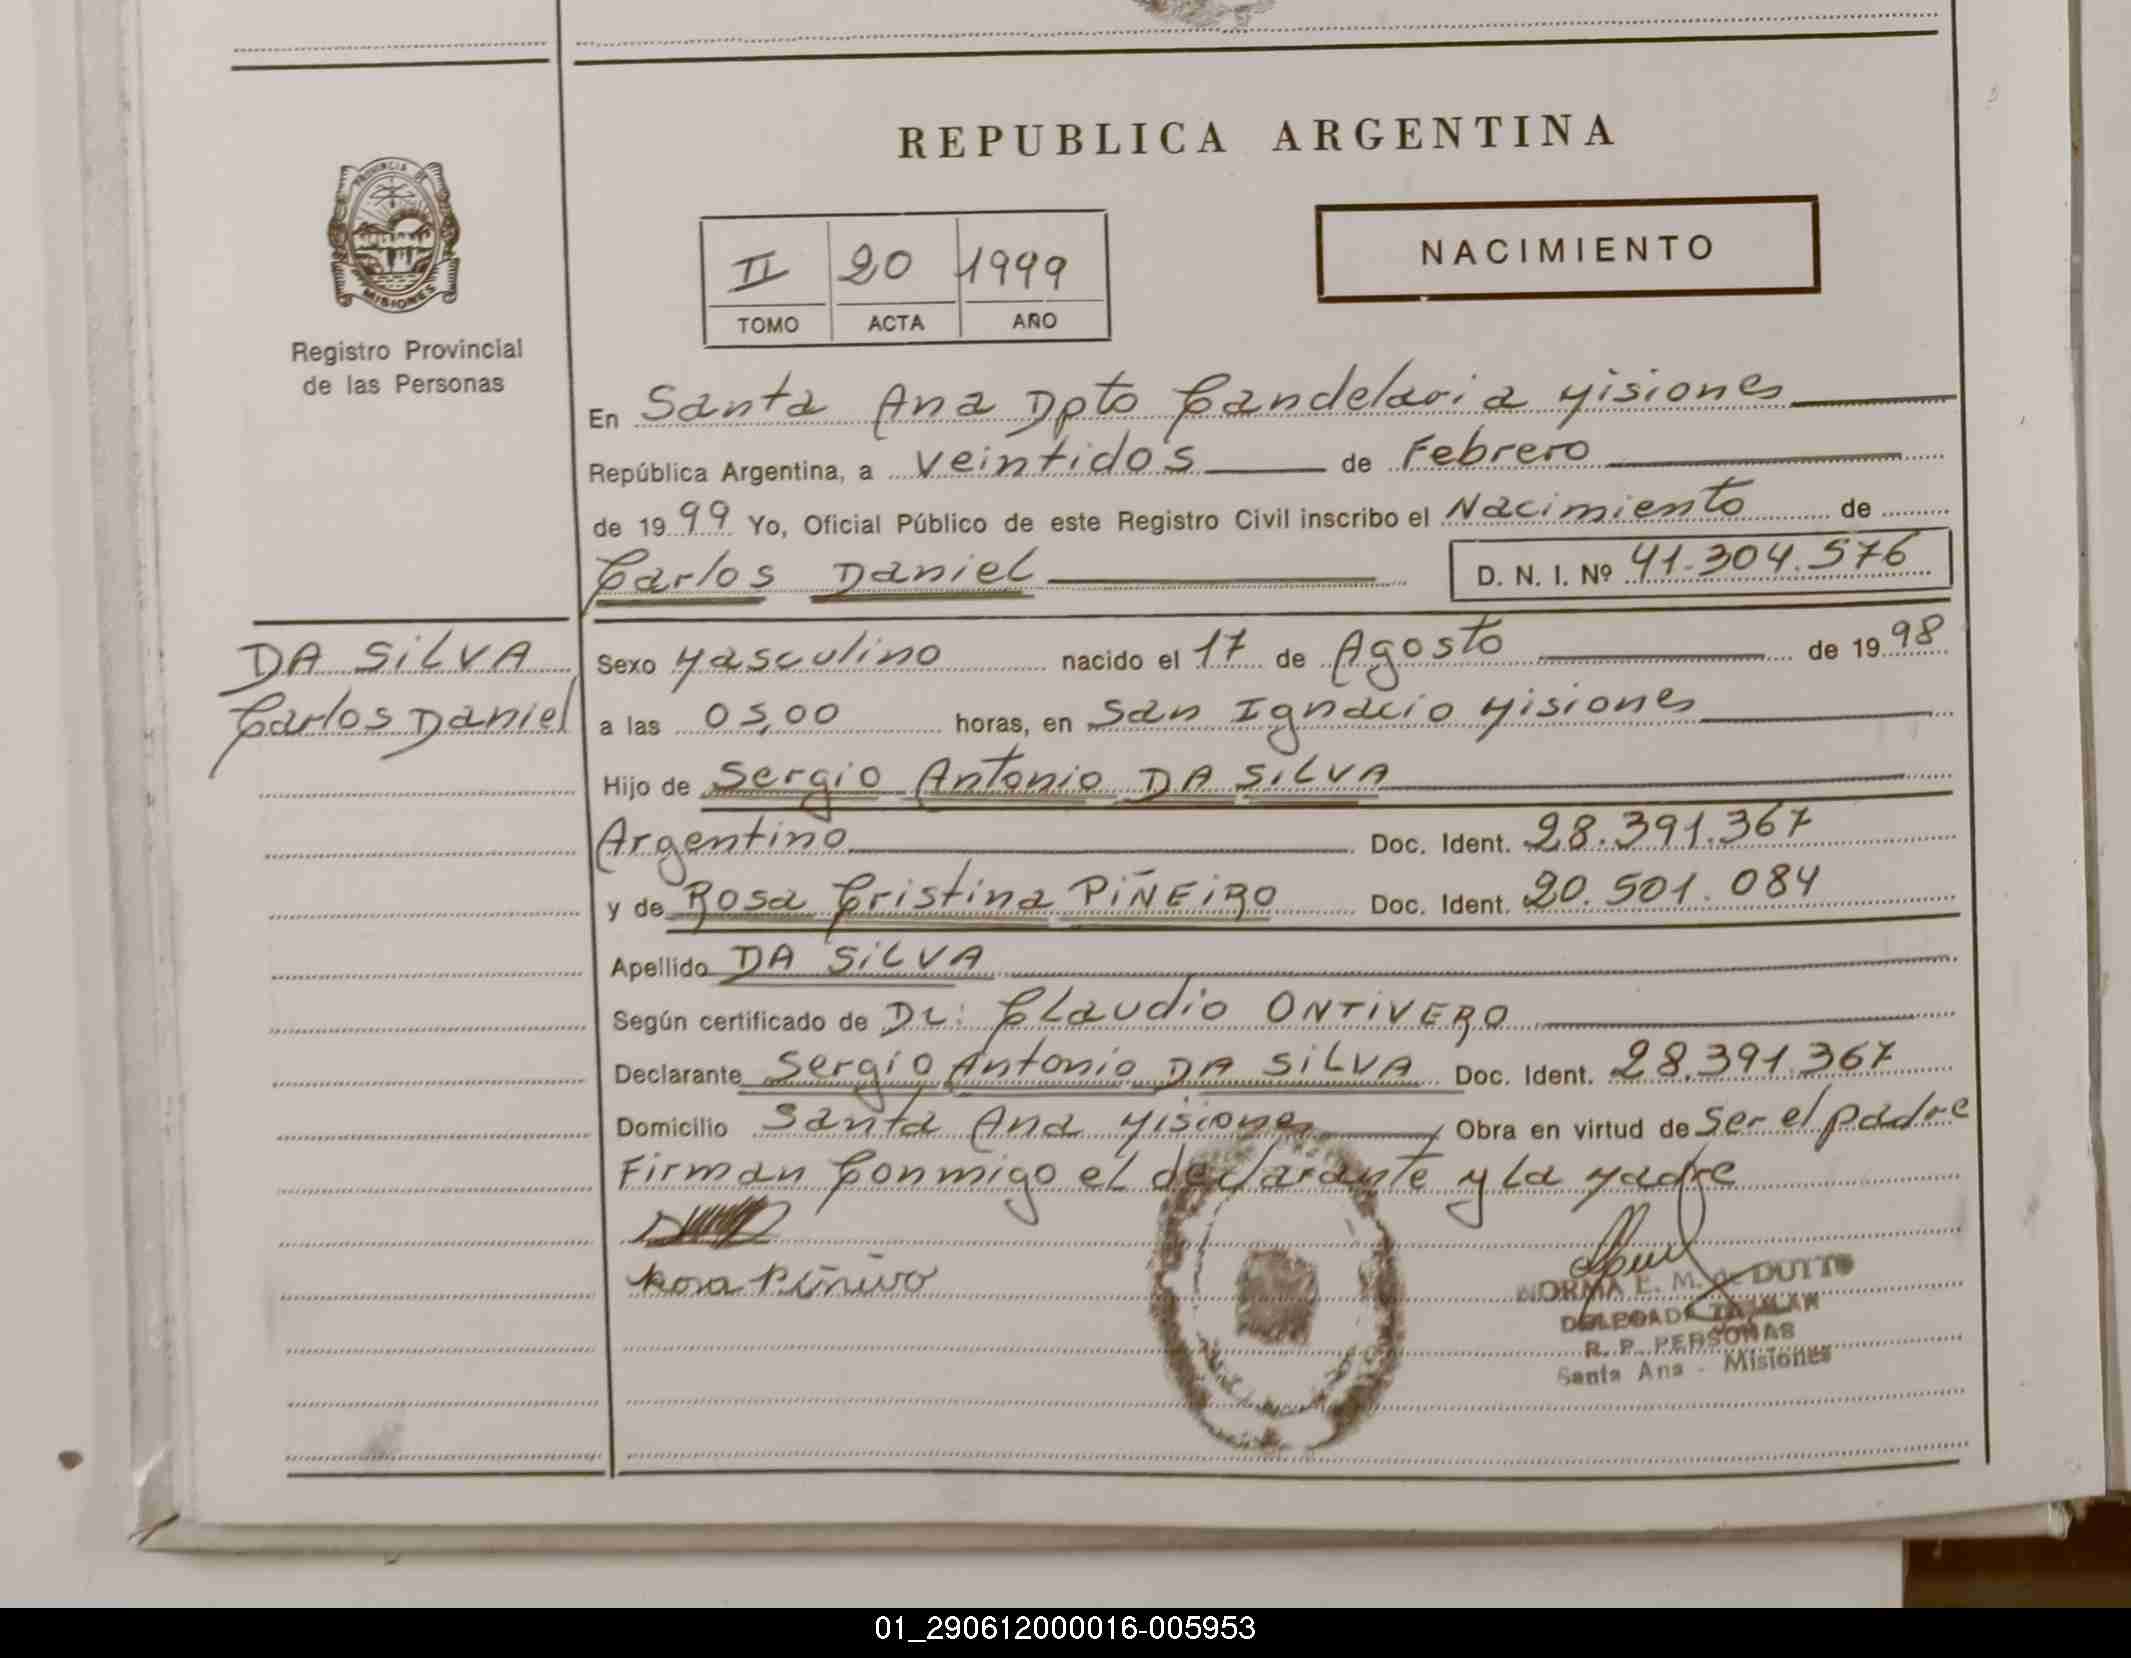 REPUBLICA ARGENTINA
PROVINCIA DE
MISIONES
Registro Provincial
de las Personas
II 20 1999
TOMO ACTA AÑO
NACIMIENTO
En Santa Ana Dpto Candelaria Misiones
República Argentina, a veintidos de Febrero
de 1999 Yo, Oficial Público de este Registro Civil inscribo el Nacimiento de
Carlos Daniel D. N. I. Nº 41.304.576
DA SILVA
Carlos Daniel
Sexo Masculino nacido el 17 de Agosto de 1998
a las 05,00 horas, en San Ignacio Misiones
Hijo de Sergio Antonio DA SILVA
Argentino Doc. Ident. 28.391.367
y de Rosa Cristina PIÑEIRO Doc. Ident. 20.501.084
Apellido DA SILVA
Según certificado de Dr: Claudio ONTIVERO
Declarante Sergio Antonio DA SILVA Doc. Ident. 28.391.367
Domicilio Santa Ana Misiones Obra en virtud de Ser el padre
Firman Conmigo el declarante y La Madre
Rosa Piñeiro
NORMA E. M. de DUTTO
DELEGADA TITULAR
R. P. PERSONAS
Santa Ana - Misiones
01_290612000016-005953